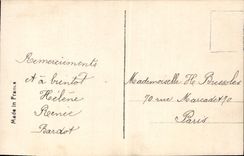 Remerciements
et à bientôt
Hélène
Renée
Bardot
Mademoiselle H.
70 rue Marcadet 90
Paris
Made in France